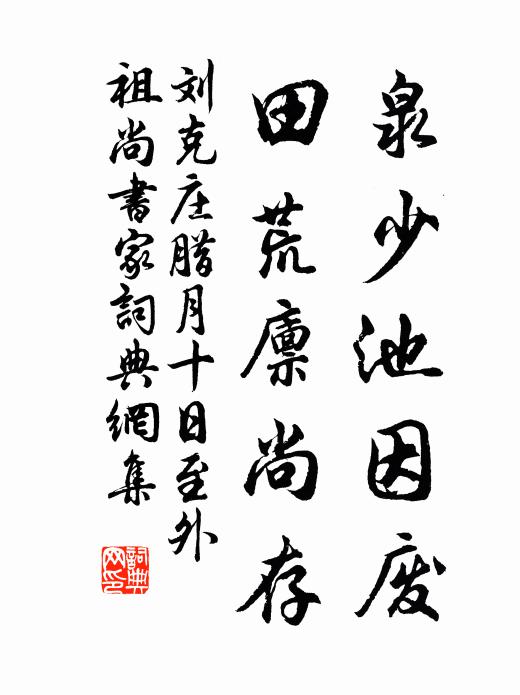 泉少池因废
田荒廪尚存
刘克庄腊月十日至外
祖尚書家詞典網集
詞典
网印